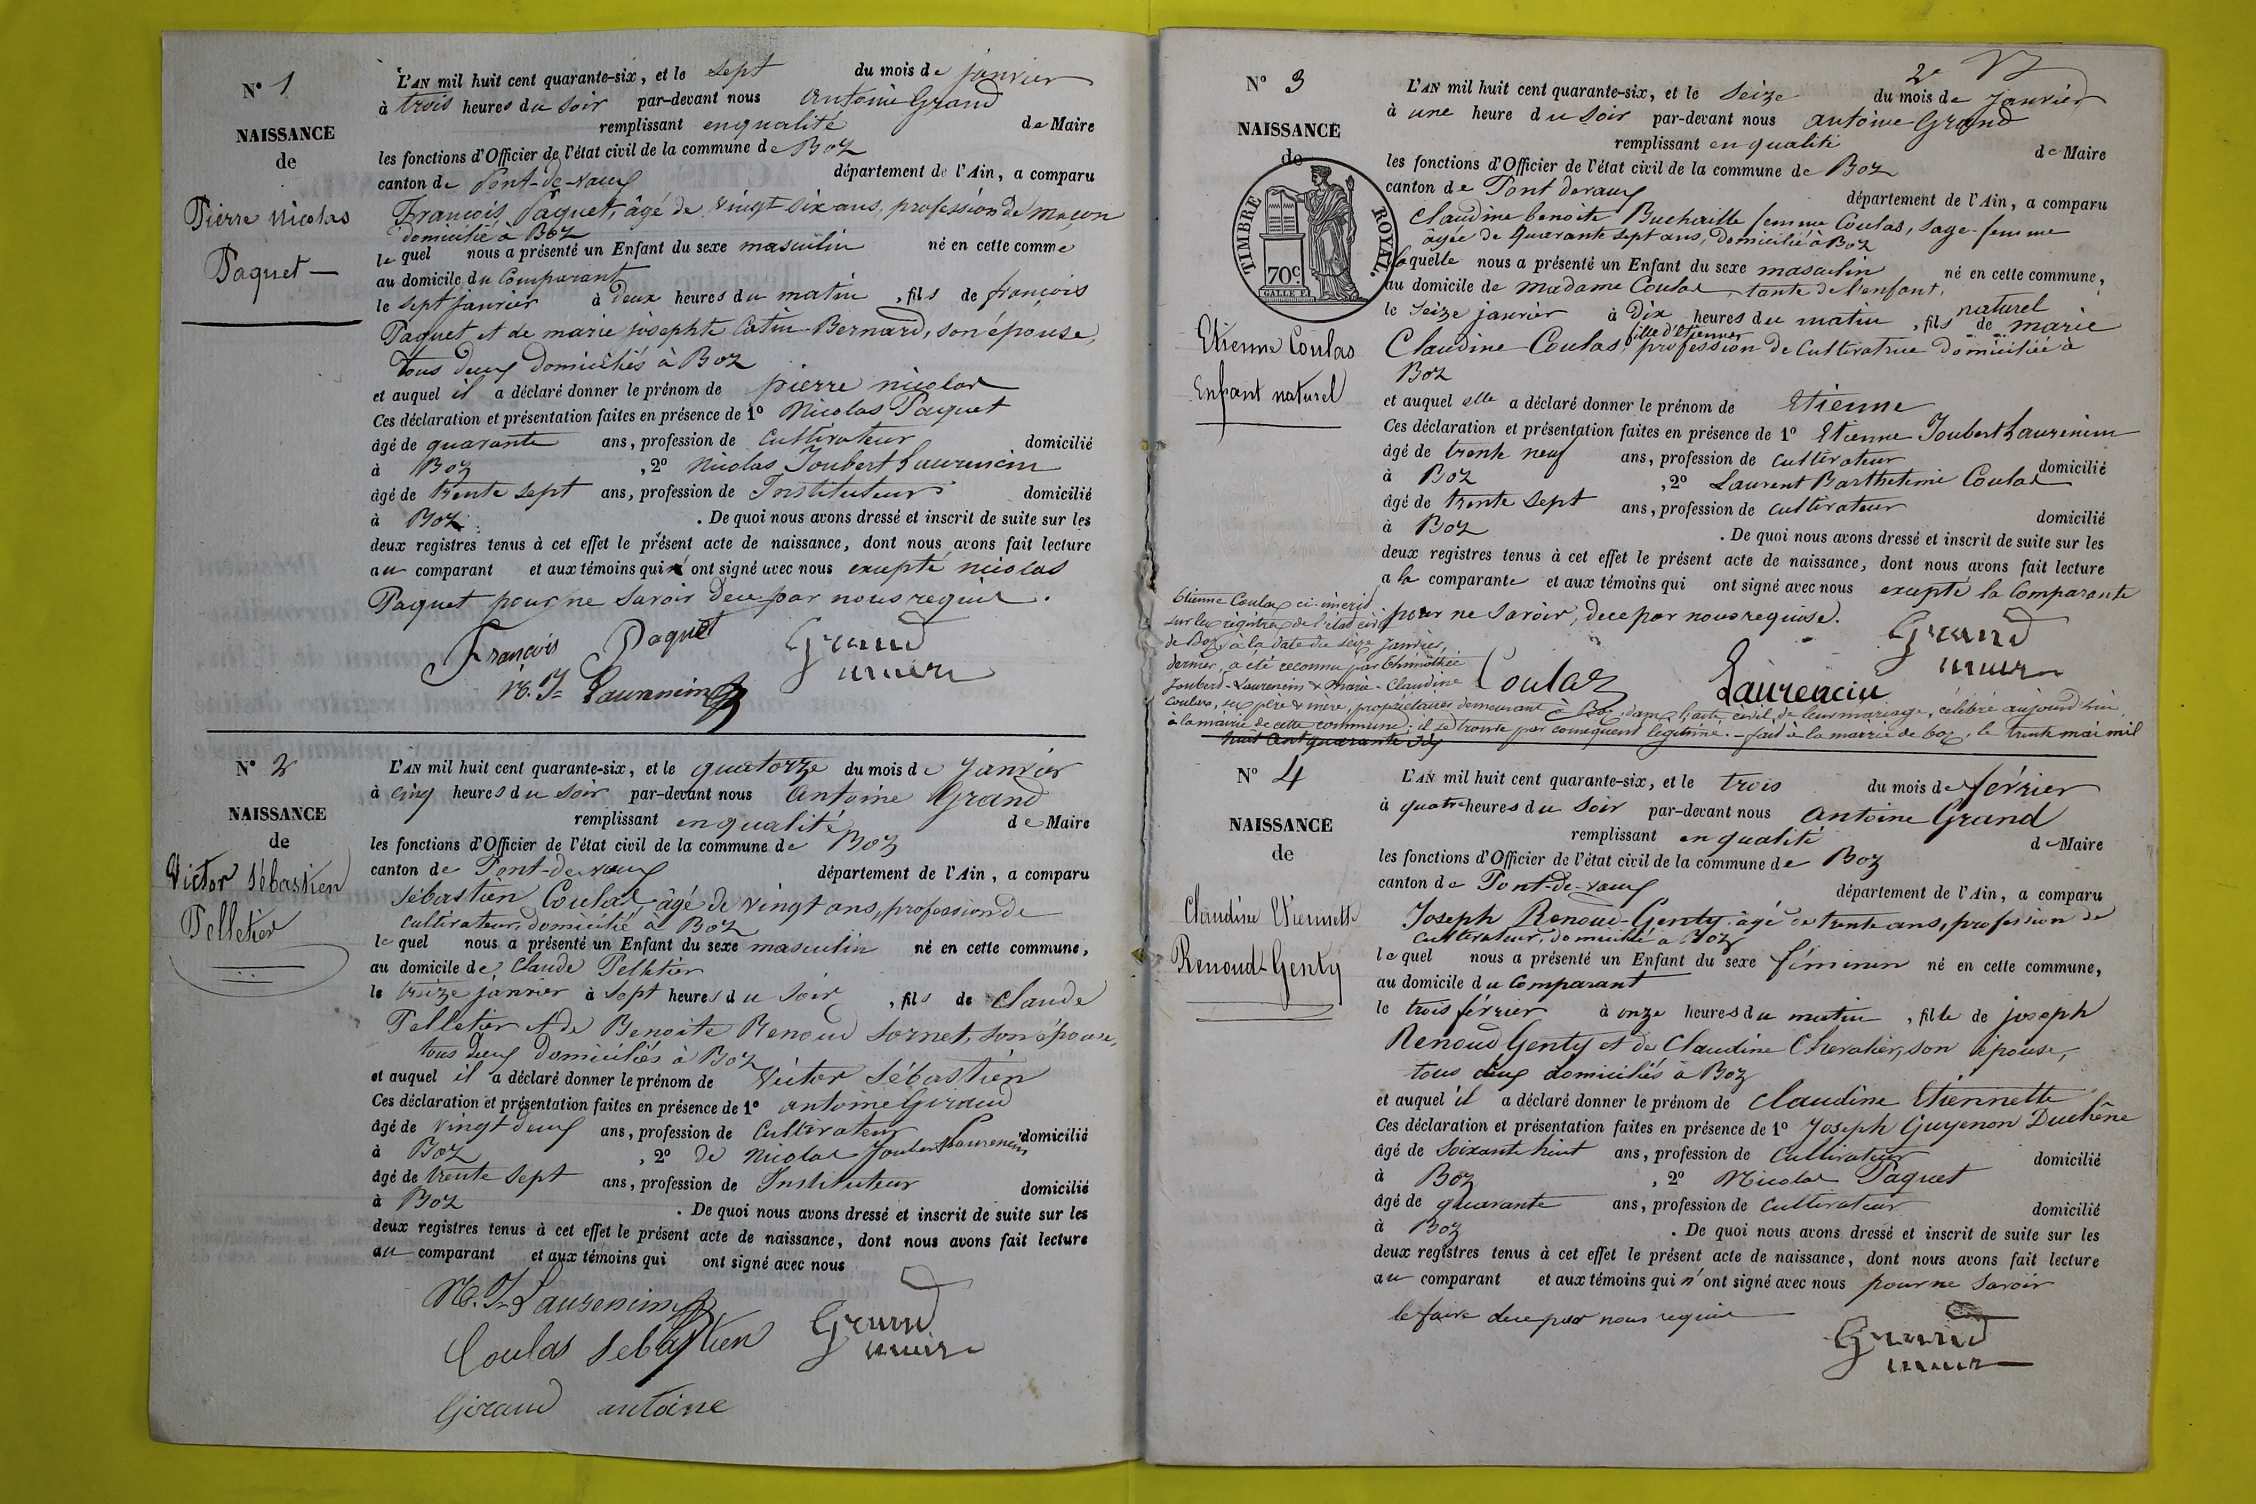 N° 1
NAISSANCE
de
Pierre Nicolas
Paquet
L'AN mil huit cent quarante-six, et le sept du mois de janvier
à trois heures du soir par-devant nous Antoine Grand
remplissant en qualité de Maire
les fonctions d'Officier de l'état civil de la commune de Boz
canton de Pont-de-vaux département de l'Ain, a comparu
François Paquet, âgé de vingt six ans, profession de maçon
domicilié à Boz
lequel nous a présenté un Enfant du sexe masculin né en cette comme
au domicile du Comparant
le sept janvier à deux heures du matin, fils de françois
Paquet et de marie josephte Catin-Bernard, son épouse,
tous deux domiciliés à Boz
et auquel il a déclaré donner le prénom de pierre nicolas
Ces déclaration et présentation faites en présence de 1° Nicolas Paquet
âgé de quarante ans, profession de cultivateur domicilié
à Boz, 2° Nicolas Joubert Laurencin
âgé de trente sept ans, profession de Instituteur domicilié
à Boz. De quoi nous avons dressé et inscrit de suite sur les
deux registres tenus à cet effet le présent acte de naissance, dont nous avons fait lecture
au comparant et aux témoins qui ont signé avec nous excepté nicolas
Paquet pour ne savoir de ce par nous requis.
François Paquet Grand
N. J. Laurencin maire
N° 2
NAISSANCE
de
Victor Sébastien
Pelletier
L'AN mil huit cent quarante-six, et le quatorze du mois de Janvier
à cinq heures du soir par-devant nous Antoine Grand
remplissant en qualité de Maire
les fonctions d'Officier de l'état civil de la commune de Boz
canton de Pont-de-vaux département de l'Ain, a comparu
Sébastien Coulas, âgé de vingt ans, profession de
cultivateur, domicilié à Boz
lequel nous a présenté un Enfant du sexe masculin né en cette commune,
au domicile de Claude Pelletier
le treize janvier à sept heures du soir, fils de Claude
Pelletier et de Benoite Renoud Sornet, son épouse,
tous deux domiciliés à Boz
et auquel il a déclaré donner le prénom de Victor Sébastien
Ces déclaration et présentation faites en présence de 1° antoine Giraud
âgé de vingt deux ans, profession de Cultivateur domicilié
à Boz, 2° de Nicolas Joubert Laurencin
âgé de trente sept ans, profession de Instituteur domicilié
à Boz. De quoi nous avons dressé et inscrit de suite sur les
deux registres tenus à cet effet le présent acte de naissance, dont nous avons fait lecture
au comparant et aux témoins qui ont signé avec nous
N. J. Laurencin
Coulas sebastien Grand
maire
Giraud antoine
2e
N° 3
NAISSANCE
de
TIMBRE ROYAL.
70c
Etienne Coulas
Enfant naturel
L'AN mil huit cent quarante-six, et le seize du mois de janvier
à une heure du soir par-devant nous antoine Grand
remplissant en qualité de Maire
les fonctions d'Officier de l'état civil de la commune de Boz
canton de Pont devaux département de l'Ain, a comparu
Claudine benoite Buchaille femme Coulas, sage-femme
âgée de quarante sept ans, domicilié à Boz
laquelle nous a présenté un Enfant du sexe masculin né en cette commune,
au domicile de madame Coulas, tante de l'enfant,
le seize janvier à dix heures du matin, fils naturel de marie
Claudine Coulas, fille d'Etienne, profession de cultivatrice domiciliée à
Boz
et auquel elle a déclaré donner le prénom de Etienne
Ces déclaration et présentation faites en présence de 1° Etienne Joubert Laurencin
âgé de trente neuf ans, profession de cultivateur domicilié
à Boz, 2° Laurent Barthelemi Coulas
âgé de trente sept ans, profession de cultivateur domicilié
à Boz. De quoi nous avons dressé et inscrit de suite sur les
deux registres tenus à cet effet le présent acte de naissance, dont nous avons fait lecture
a la comparante et aux témoins qui ont signé avec nous excepté la Comparante
pour ne savoir, de ce par nous requise.
Grand
Coulas Laurencin maire
Etienne Coulas ci-inscrit
sur les régistres de l'état civil
de Boz à la date du seize janvier,
dernier, a été reconnu par Thimothée
Joubert-Laurencin & Marie-Claudine
Coulas, ses père & mère, propriétaires demeurant à Boz, dans l'acte civil de leur mariage, célébré aujourd'hui
à la mairie de cette commune; il se trouve par conséquent légitimé. - fait à la mairie de boz, le trente mai mil
huit cent quarante six
N° 4
NAISSANCE
de
Claudine Etiennette
Renoud-Genty
L'AN mil huit cent quarante-six, et le trois du mois de février
à quatre heures du soir par-devant nous Antoine Grand
remplissant en qualité de Maire
les fonctions d'Officier de l'état civil de la commune de Boz
canton de Pont-de-vaux département de l'Ain, a comparu
Joseph Renoud-Genty âgé de trente ans, profession de
cultivateur, domicilié à Boz
lequel nous a présenté un Enfant du sexe féminin né en cette commune,
au domicile du Comparant
le trois février à onze heures du matin, fille de joseph
Renoud Genty et de Claudine Chevalier, son épouse,
tous deux domiciliés à Boz
et auquel il a déclaré donner le prénom de Claudine Etiennette
Ces déclaration et présentation faites en présence de 1° Joseph Guyenon Duchêne
âgé de soixante huit ans, profession de cultivateur domicilié
à Boz, 2° Nicolas Paquet
âgé de quarante ans, profession de cultivateur domicilié
à Boz. De quoi nous avons dressé et inscrit de suite sur les
deux registres tenus à cet effet le présent acte de naissance, dont nous avons fait lecture
au comparant et aux témoins qui n'ont signé avec nous pour ne savoir
le faire de ce par nous requis
Grand
maire